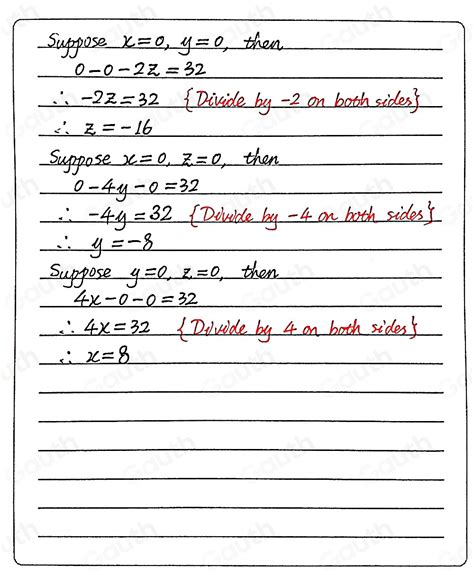 Suppose x=0, y=0, then
0-0-2z=32
∴ -2z=32 {Divide by -2 on both sides}
∴ z=-16
Suppose x=0, z=0, then
0-4y-0=32
∴ -4y=32 {Divide by -4 on both sides}
∴ y=-8
Suppose y=0, z=0, then
4x-0-0=32
∴ 4x=32 {Divide by 4 on both sides}
∴ x=8
Gauth